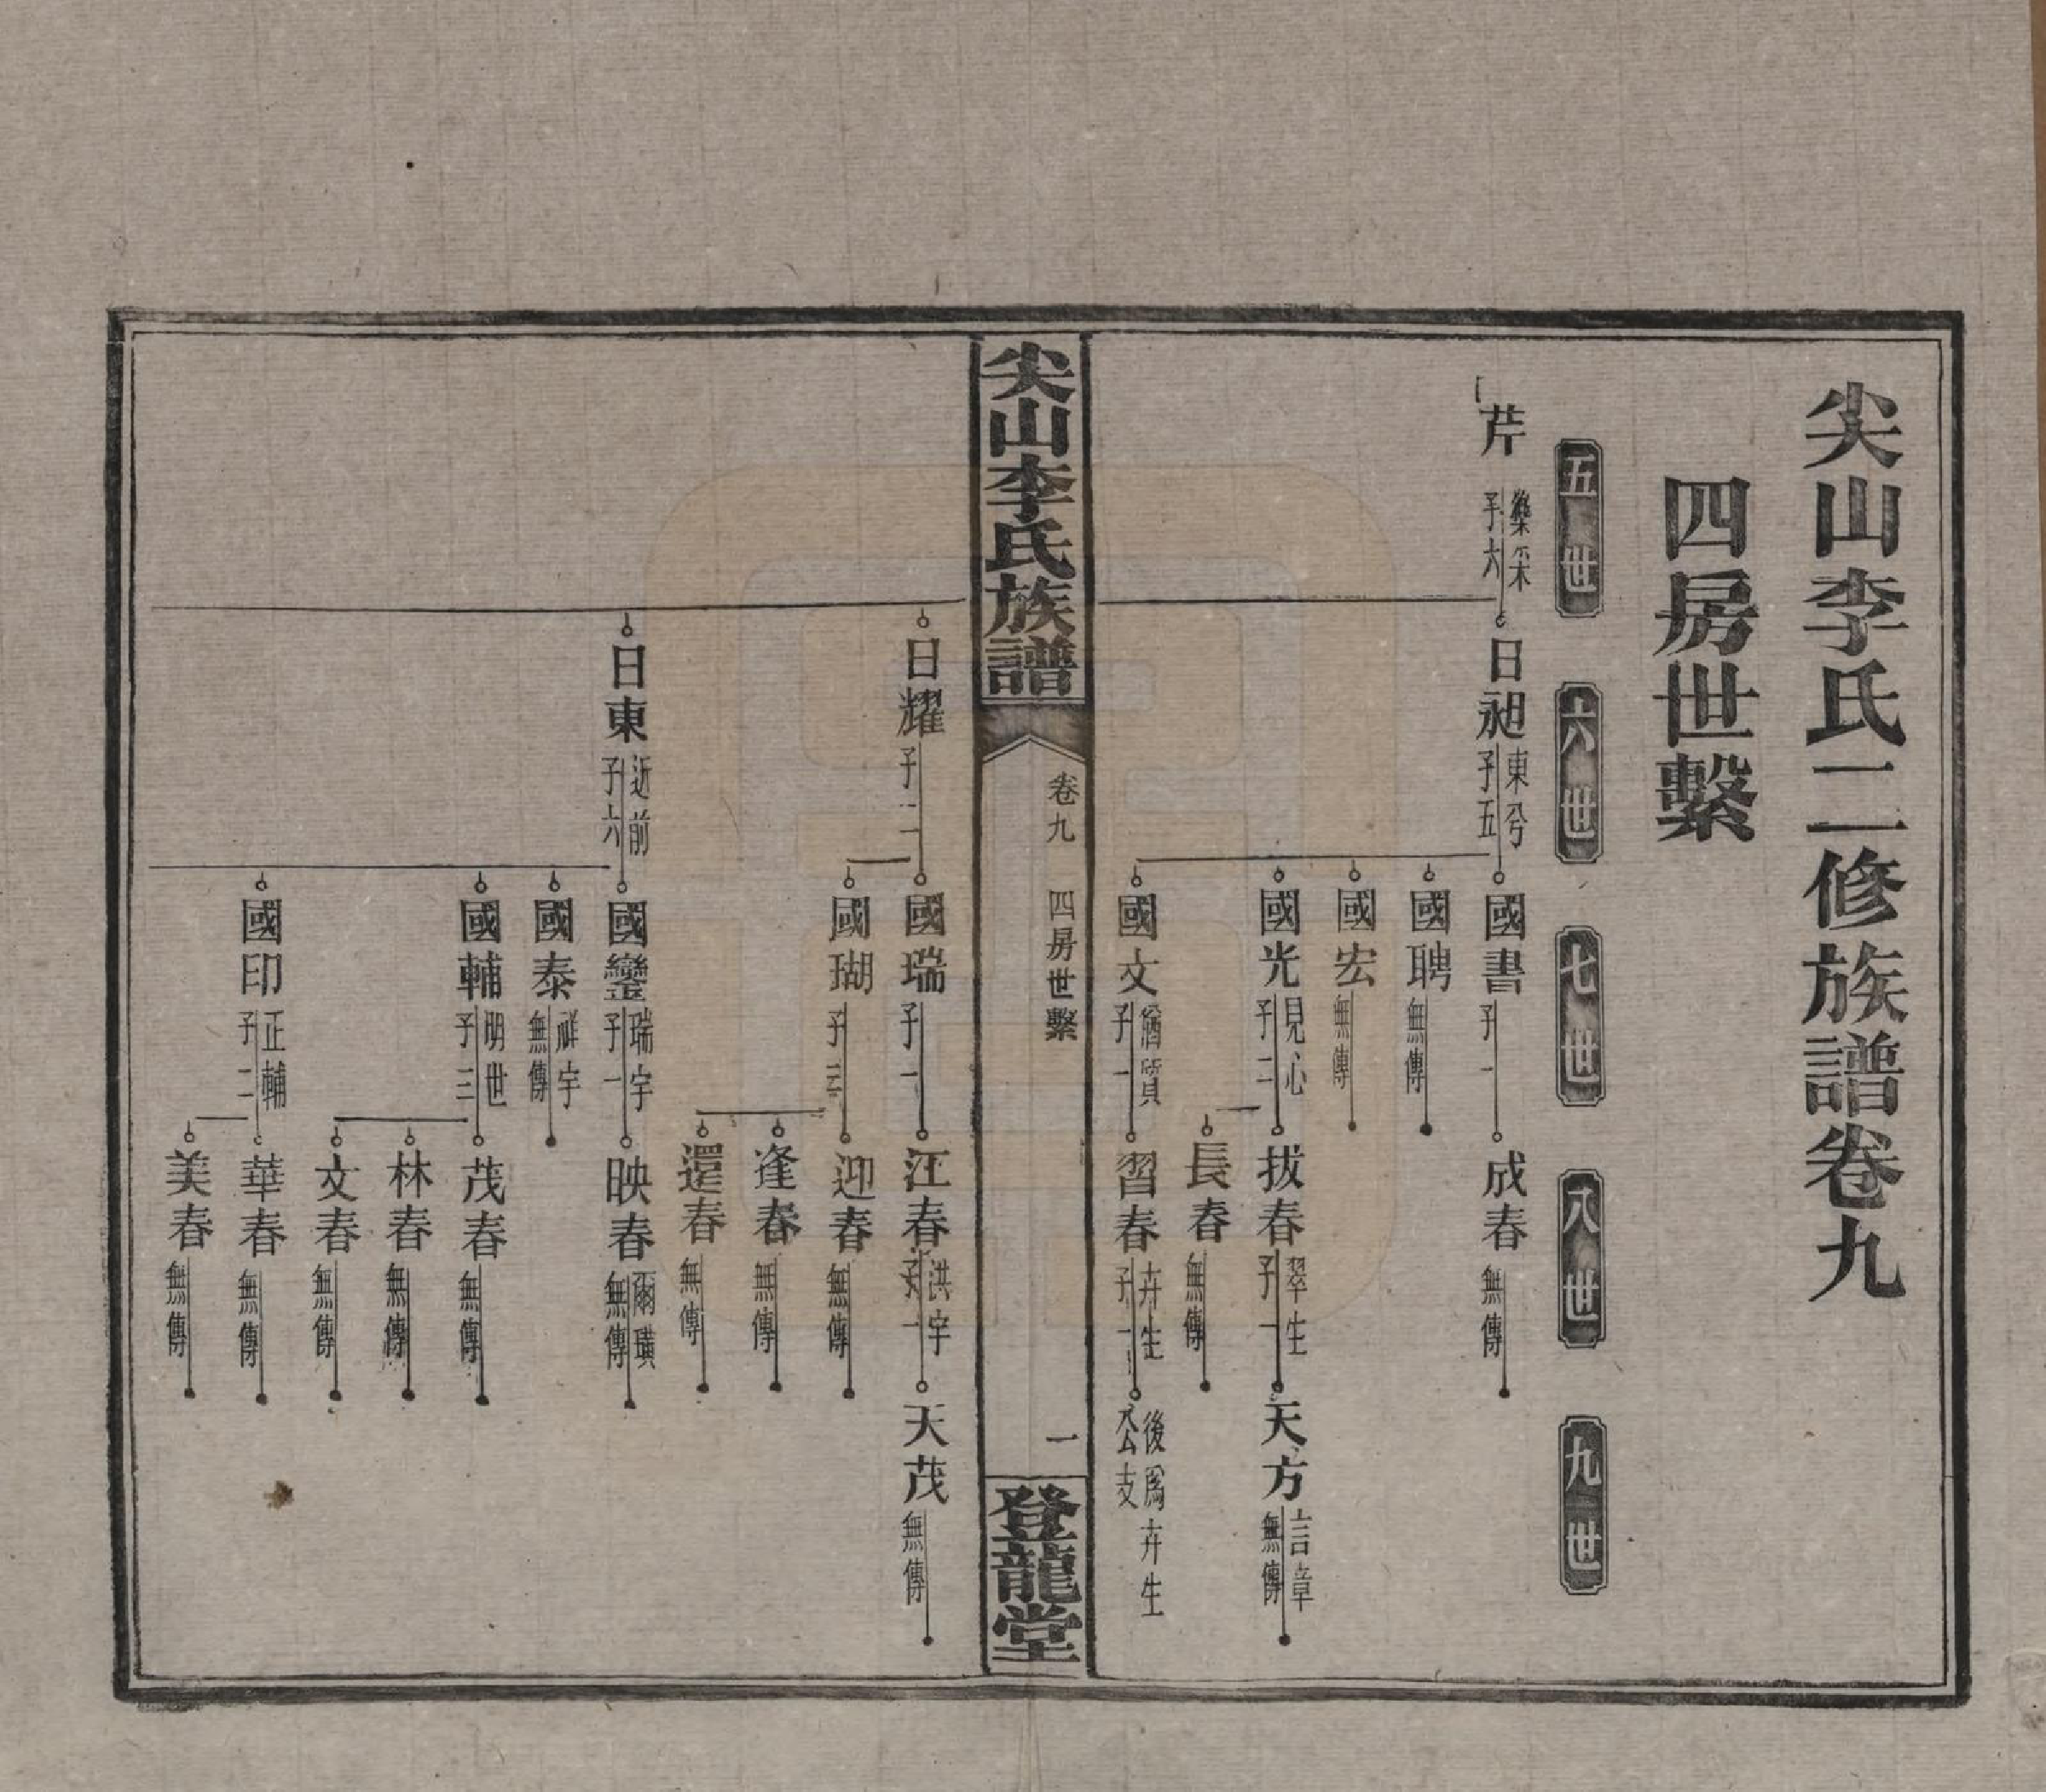 尖山李氏二修族譜卷九
四房世繫
五世
六世
七世
八世
九世
芹
樂采
子六
日昶
東兮
子五
國書
子一
成春
無傳
國聘
無傳
國宏
無傳
國光
見心
子二
拔春
翠生
子一
天方
言章
無傳
長春
無傳
國文
子一
習春
卉生
子一
後爲卉生
公支
尖山李氏族譜
卷九
四房世繫
一
登龍堂
日耀
子二
國瑞
子一
汪春
洪宇
子一
天茂
無傳
國瑚
子三
迎春
無傳
逢春
無傳
還春
無傳
日東
近前
子六
國鑾
瑞宇
子一
映春
爾璜
無傳
國泰
祥宇
無傳
國輔
明世
子三
茂春
無傳
林春
無傳
文春
無傳
國印
正輔
子二
華春
無傳
美春
無傳